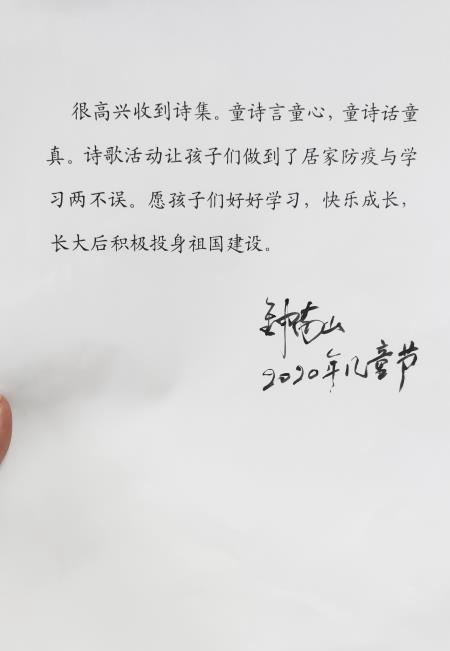 很高兴收到诗集。童诗言童心，童诗话童
真。诗歌活动让孩子们做到了居家防疫与学
习两不误。愿孩子们好好学习，快乐成长，
长大后积极投身祖国建设。
钟南山
2020年儿童节